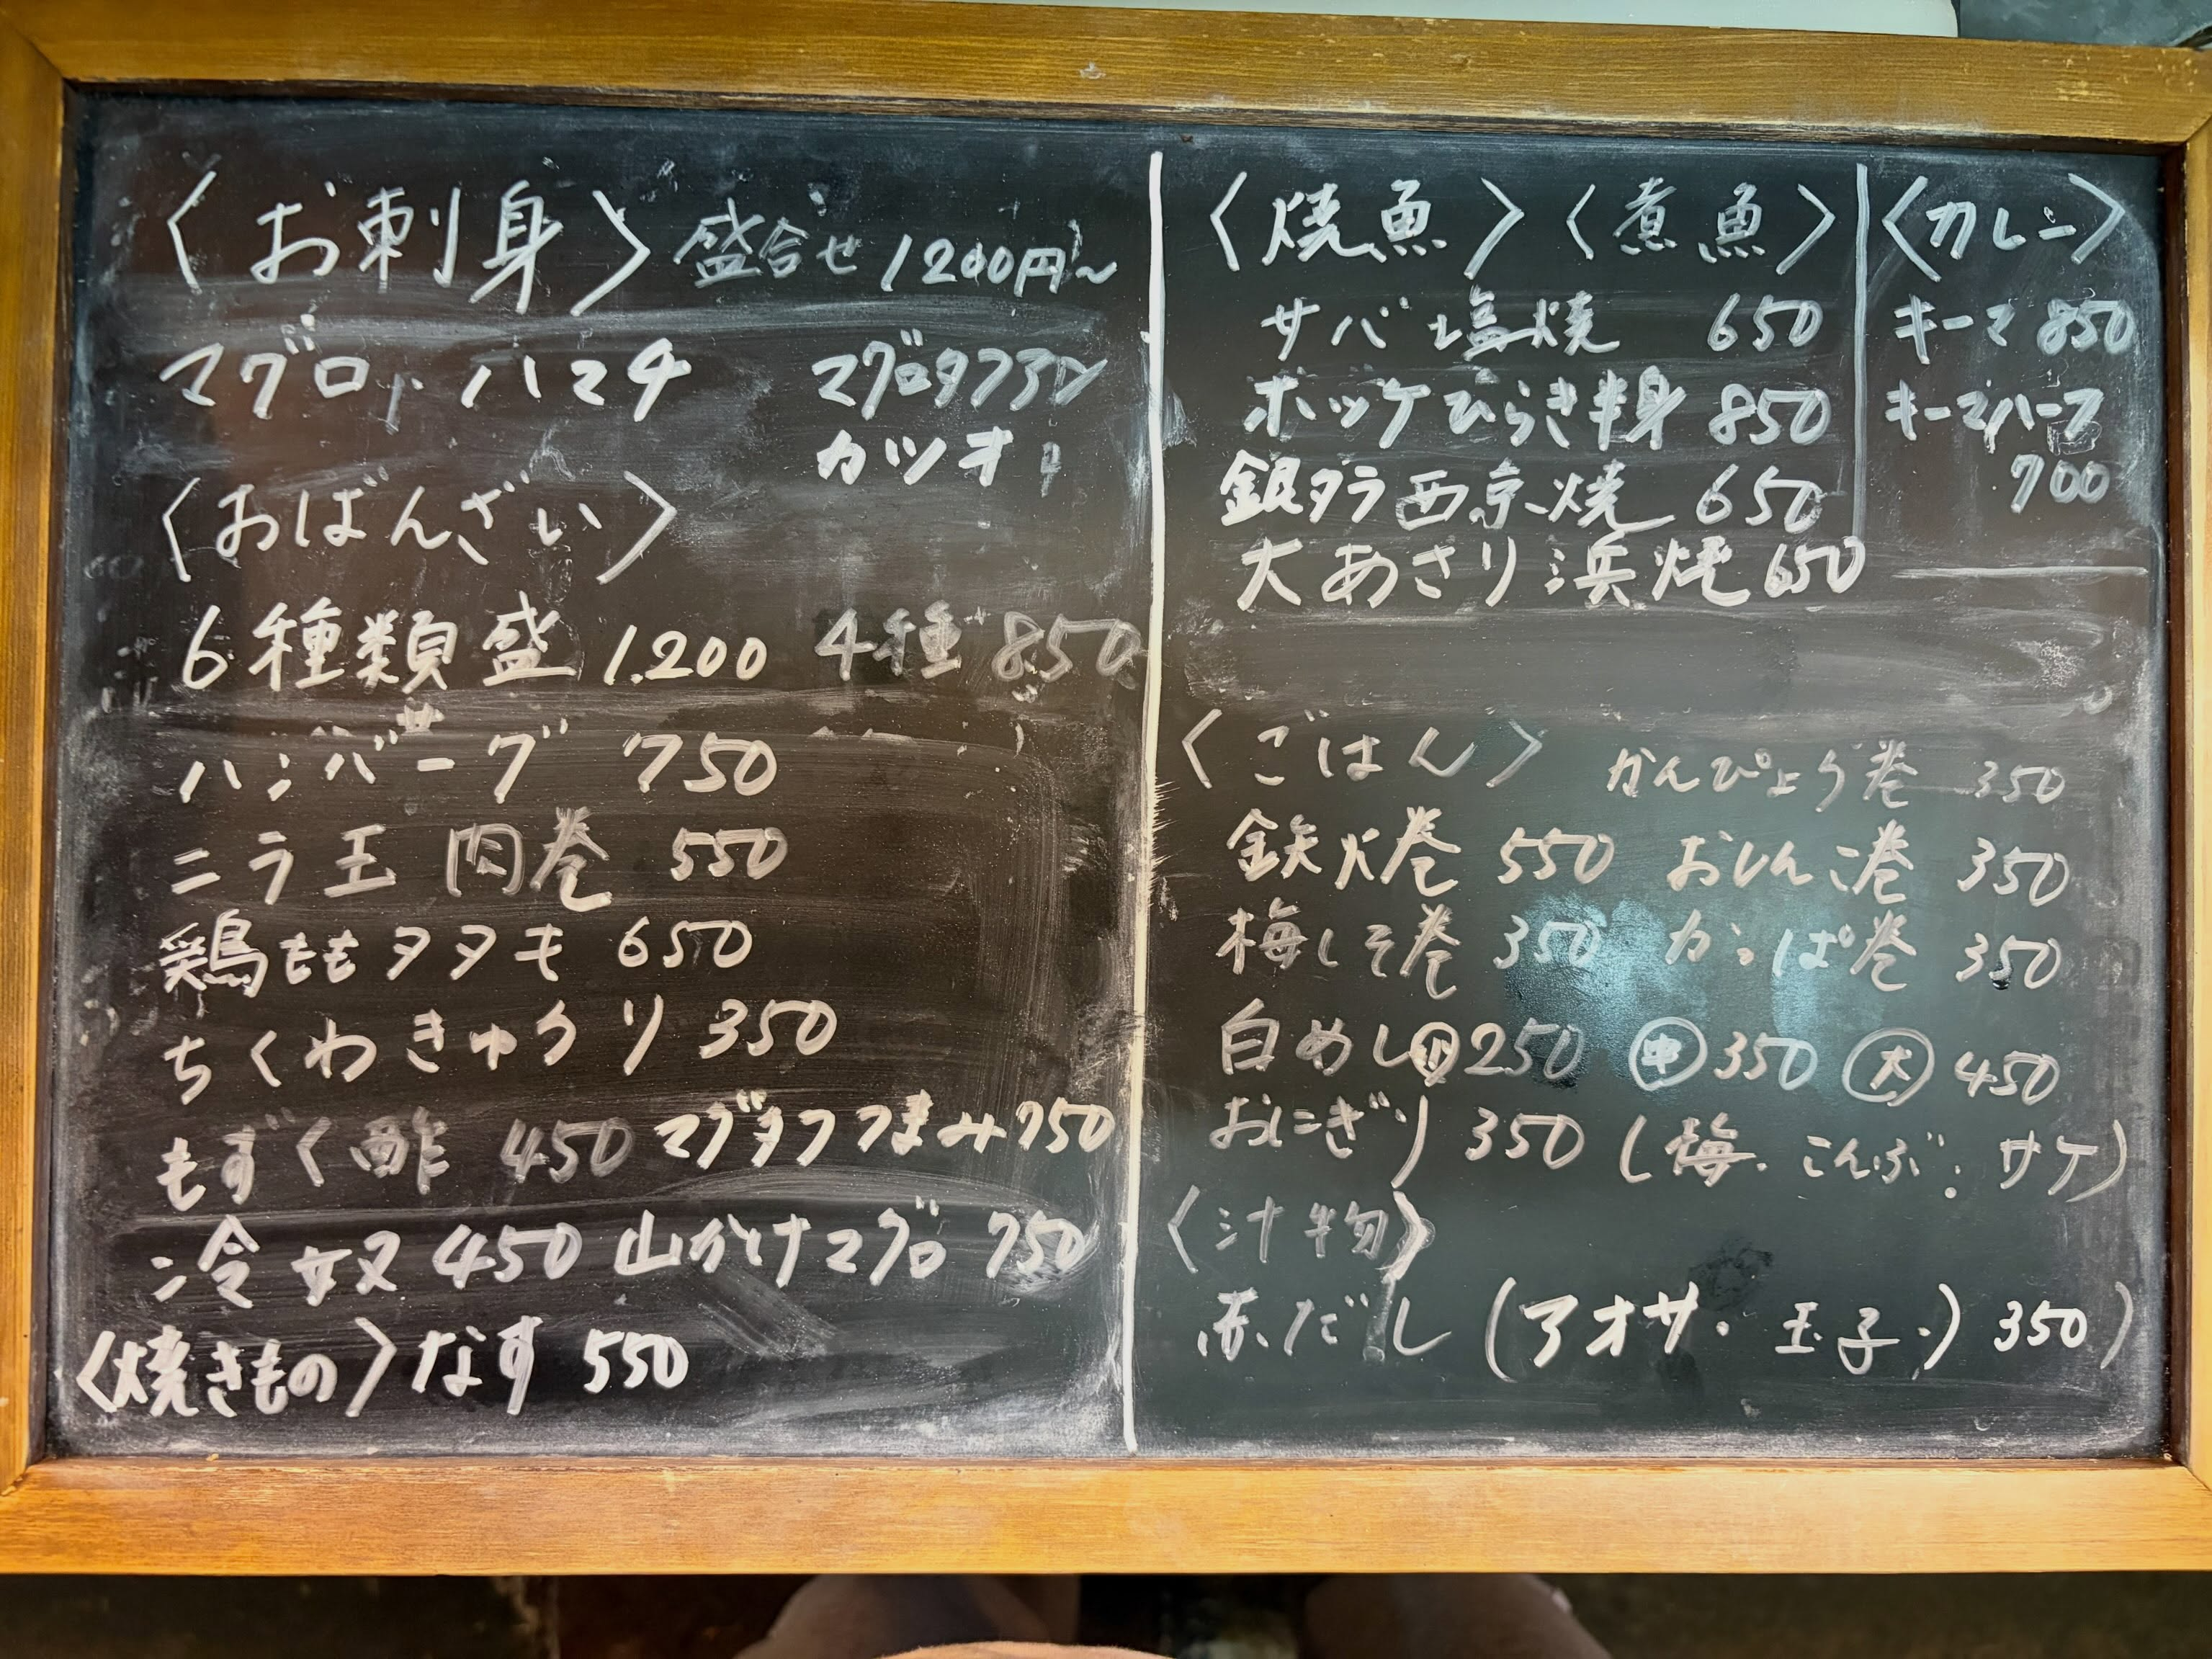 〈お刺身〉盛合せ 1200円〜
マグロ, ハマチ マグロタタキ
カツオ
〈おばんざい〉
6種類盛 1.200 4種 850
ハンバーグ 750
ニラ玉 肉巻 550
鶏ももタタキ 650
ちくわきゅうり 350
もずく酢 450 つまみ 750
冷奴 450 山かけマグロ 750
〈焼きもの〉なす 550
〈焼魚〉〈煮魚〉
サバ塩焼 650
ホッケひらき半身 850
銀タラ西京焼 650
大あさり浜焼 650
〈カレー〉
キーマ 850
キーマハーフ
700
〈ごはん〉 かんぴょう巻 350
鉄火巻 550 おしんこ巻 350
梅しそ巻 350 かっぱ巻 350
白めし㊙250 ㊥350 大 450
おにぎり 350 (梅. こんぶ. サケ)
〈汁物〉
赤だし (アオサ. 玉子.) 350)